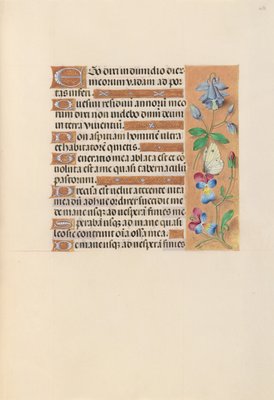 Ego dixi in dimidio dierum
meorum vadam ad por
tas inferi.
Quesivi residuum annorum meo
rum dixi non videbo dominum deum
in terra viventium.
Non aspitiam hominem ultra
et habitatorem quietis.
Generatio mea ablata est et co
voluta est a me quasi tabernaculum
pastorum.
Precisa est velut a texente vita
mea dum adhuc ordirer succidit me
de mane usque ad vesperam finies me
Sperabam usque ad mane qua
si leo sic contrivit omnia ossa mea.
De mane usque ad vesperam finies